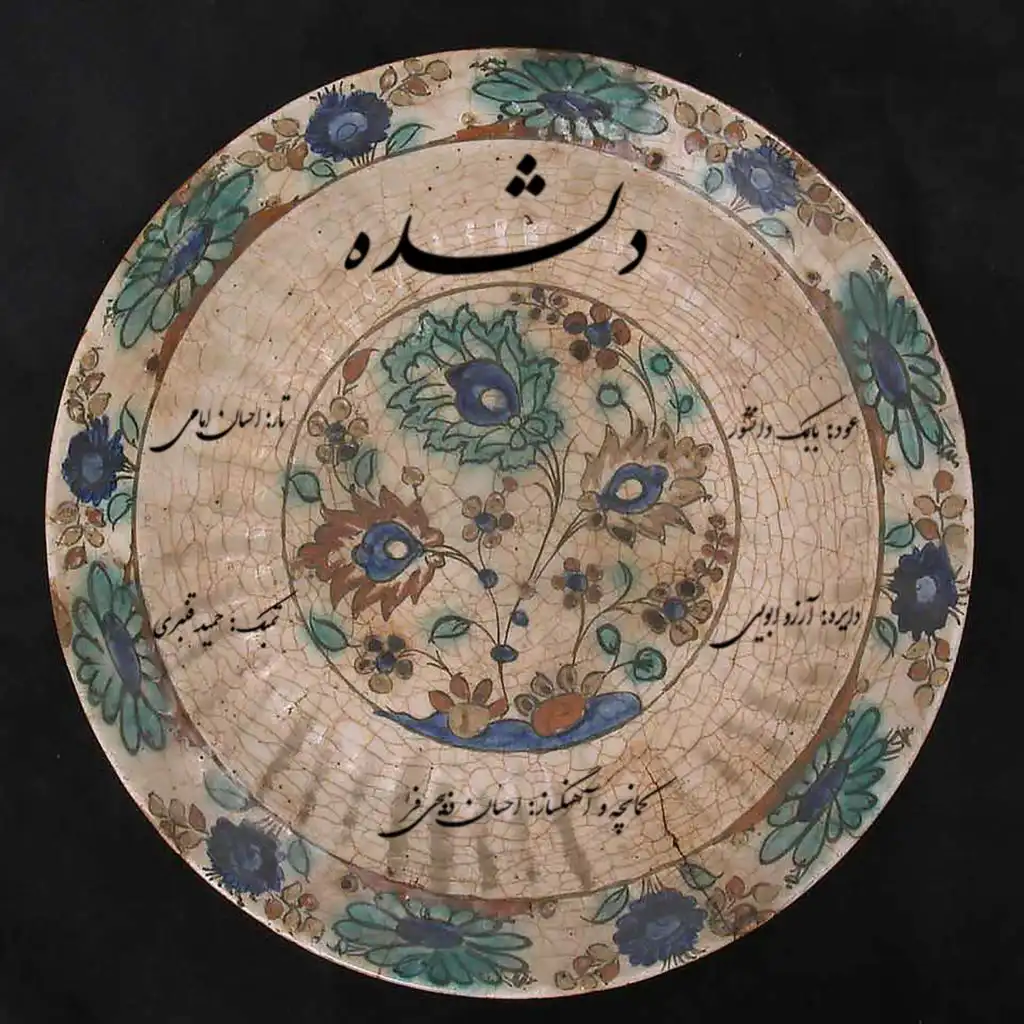 دلشده
عود: بابک دانشور
تار: احسان امامی
دایره: آرزو ابویی
تمبک: حمید قنبری
کمانچه و آهنگساز: احسان ذبیحی فر